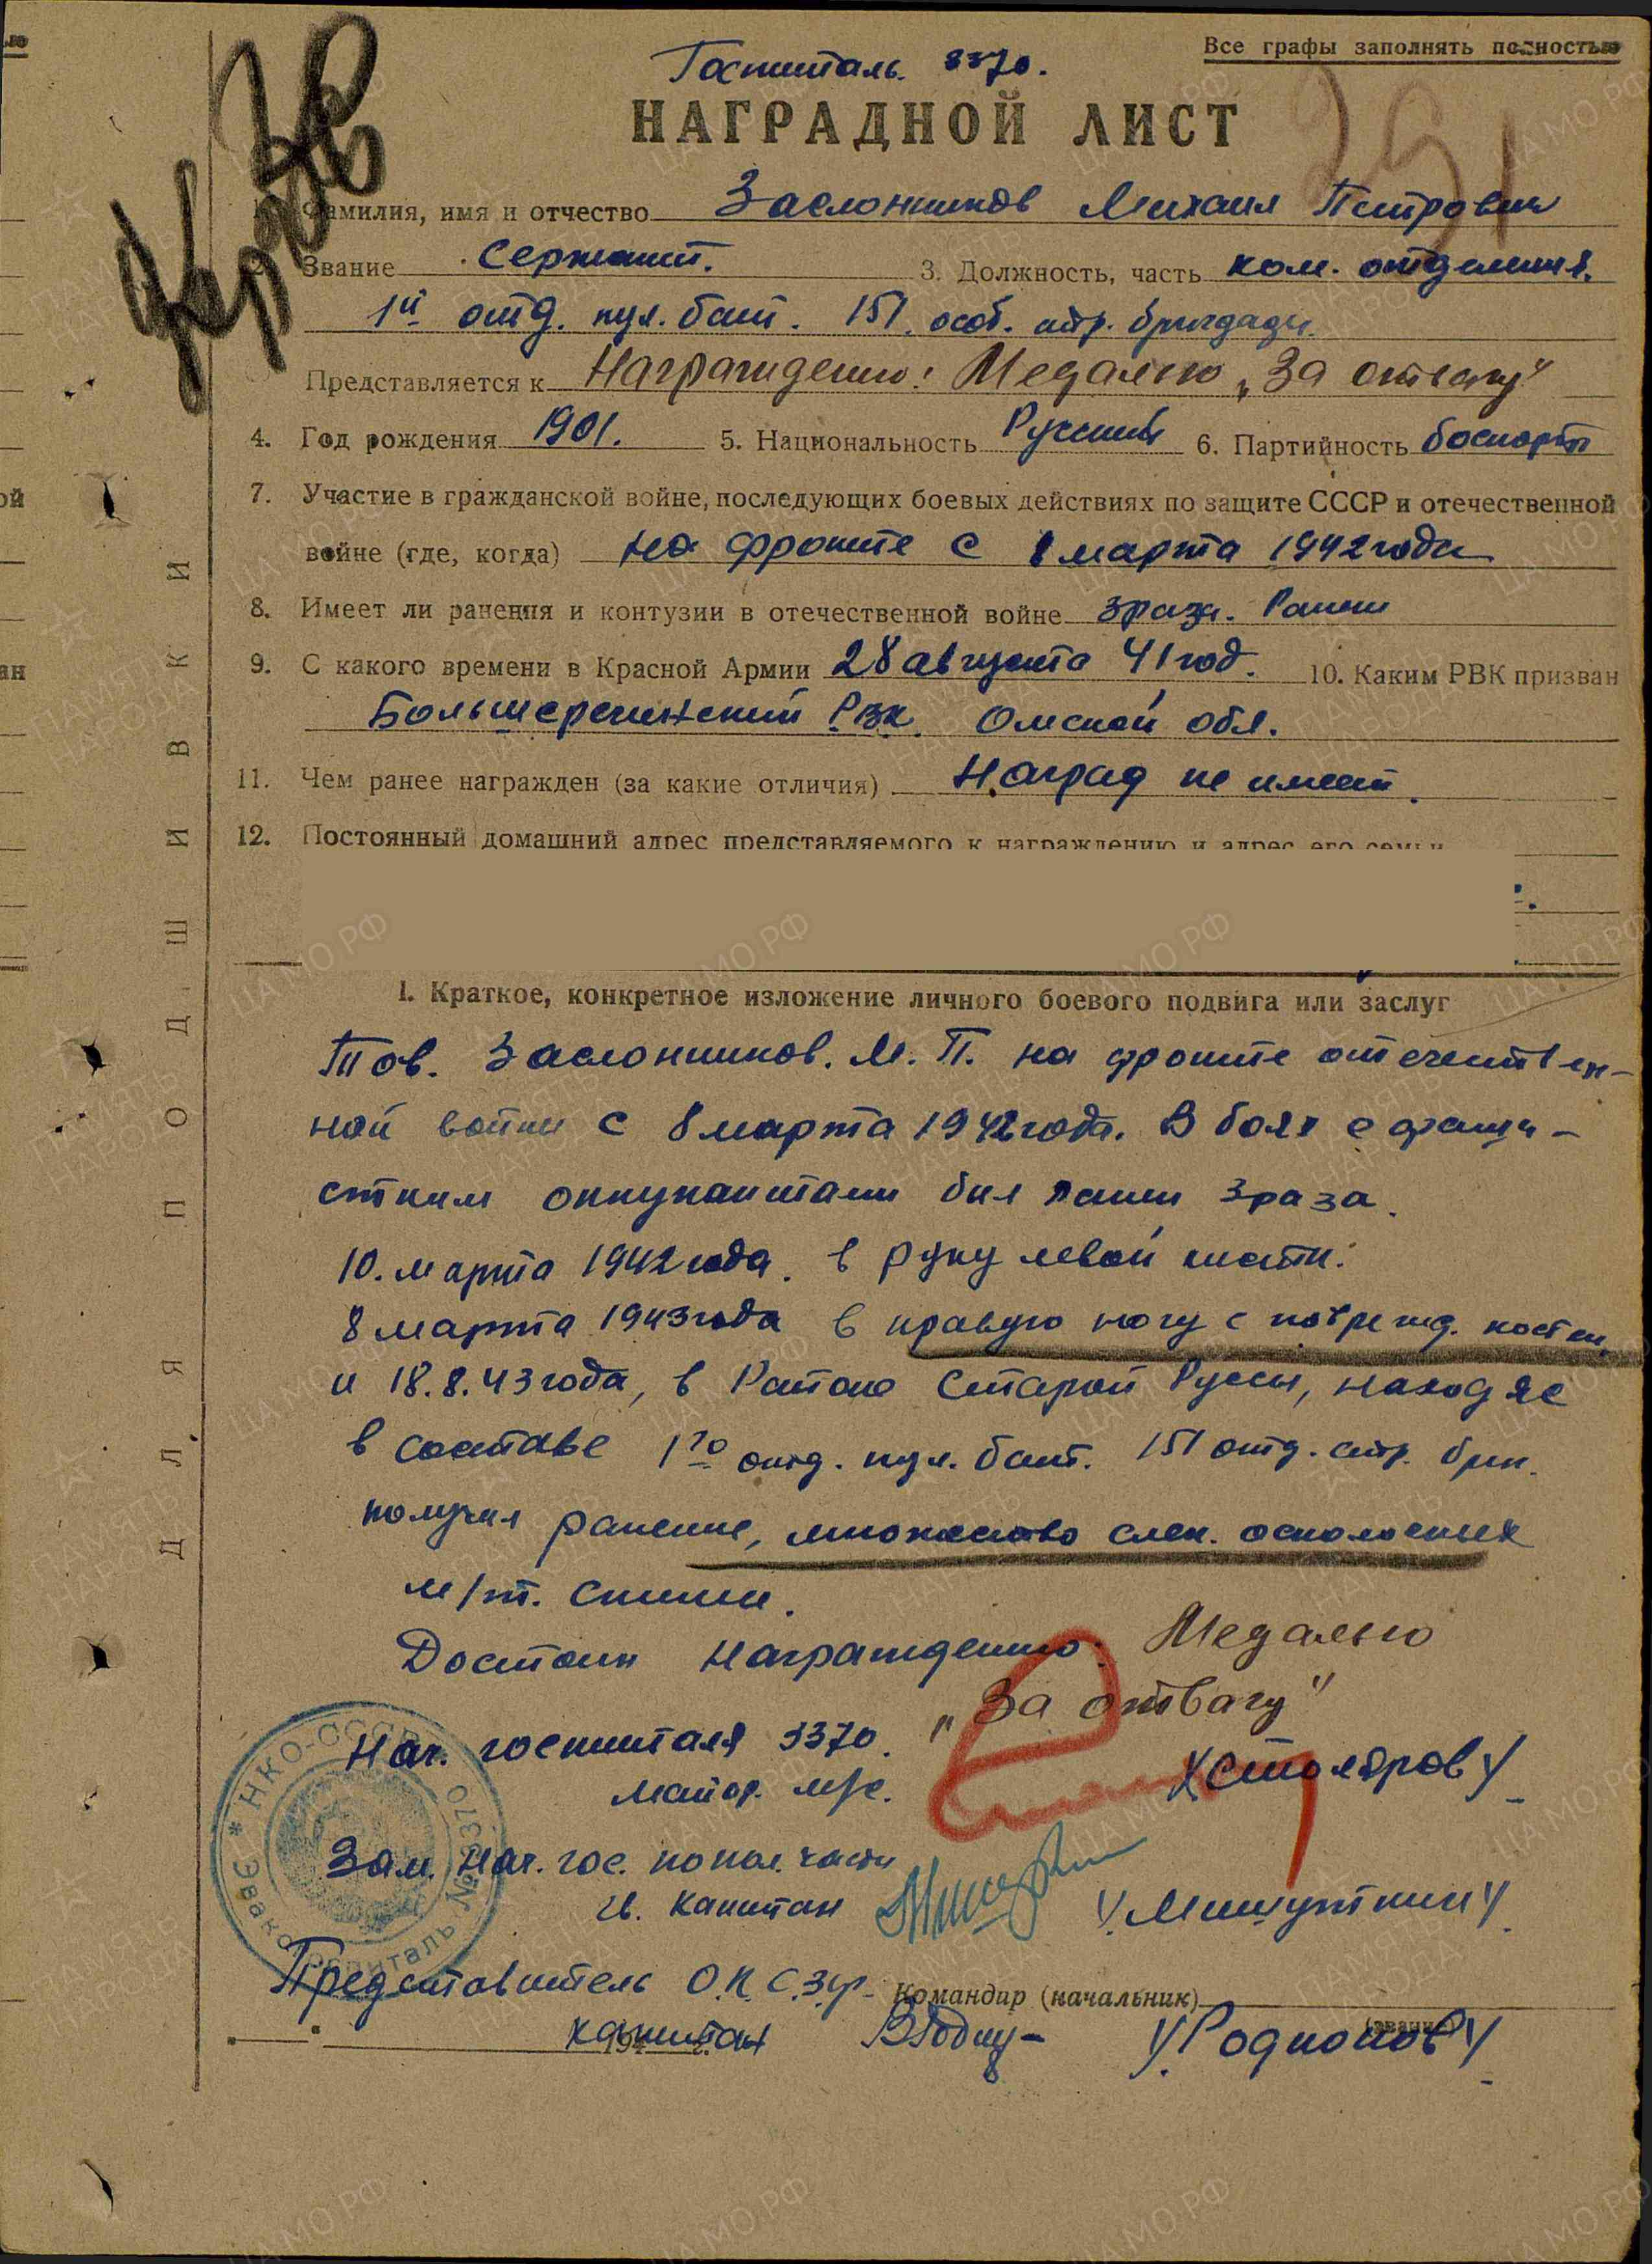 Все графы заполнять полностью
Госпиталь. 3370.
НАГРАДНОЙ ЛИСТ
251
1. Фамилия, имя и отчество Заслонников Михаил Петрович
2. Звание Сержант. 3. Должность, часть ком. отделения.
1й отд. пул. бат. 151. особ. стр. бригады.
Представляется к Награждению: Медалью „За отвагу"
4. Год рождения 1901. 5. Национальность Русский 6. Партийность беспарт
7. Участие в гражданской войне, последующих боевых действиях по защите СССР и отечественной
войне (где, когда) на фронте с 8 марта 1942 года
8. Имеет ли ранения и контузии в отечественной войне 3 раза. Ранен
9. С какого времени в Красной Армии 28 августа 41 год. 10. Каким РВК призван
Большереченский РВК. Омской обл.
11. Чем ранее награжден (за какие отличия) Наград не имеет.
12. Постоянный домашний адрес представляемого к награждению и адрес его семьи
1. Краткое, конкретное изложение личного боевого подвига или заслуг
Тов. Заслонников. М. П. на фронте отечествен-
ной войны с 8 марта 1942 года. В боях с фаши-
стким оккупантами был ранен 3 раза.
10. марта 1942 года. в руку левой кисти.
8 марта 1943 года в правую ногу с поврежд. костей.
и 18.8.43 года, в Районе Старой Руссы, находяс
в составе 1го отд. пул. бат. 151 отд. стр. бриг.
получил ранение, множество слеп. осколочных
м/т. спины.
Достоин Награждению: Медалью
„За отвагу"
Нач. госпиталя 3370.
майор. м/с. /Столяров/
Зам. Нач. гос. по пол. части
гв. Капитан /Мишуткин/
Представитель О.К. С.З.Ф. Командир (начальник)
(звание)
капитан /Родионов/
194 г.
НКО-СССР * Эвакогоспиталь № 3370
ДЛЯ ПОДШИВКИ